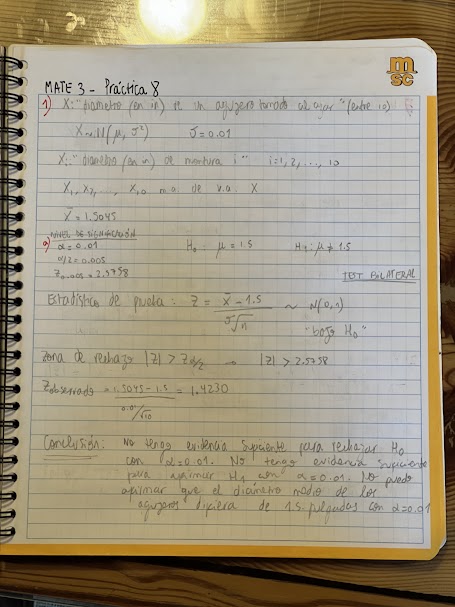 m
sc
MATE 3 - Práctica 8
1) X: "Diametro (en in) de un agujero tomado al azar" (entre 10)
X ~ N(μ, σ²) σ = 0.01
Xi: "diametro (en in) de montura i" i=1, 2, ..., 10
X1, X2, ..., X10 m.a. de v.a. X
X̄ = 1.5045
NIVEL DE SIGNIFICACIÓN
a) α = 0.01 H0: μ = 1.5 H1: μ ≠ 1.5
α/2 = 0.005
Z0.005 = 2.5758 TEST BILATERAL
Estadístico de prueba: Z = X̄ - 1.5 / σ/√n ~ N(0,1)
"bajo H0"
Zona de rechazo |Z| > Zα/2 → |Z| > 2.5758
Zobservado = 1.5045 - 1.5 / 0.01/√10 = 1.4230
Conclusión: No tengo evidencia suficiente para rechazar H0
con α = 0.01. No tengo evidencia suficiente
para afirmar H1 con α = 0.01. No puedo
afirmar que el diámetro medio de los
agujeros difiera de 1.5 pulgadas con α = 0.01